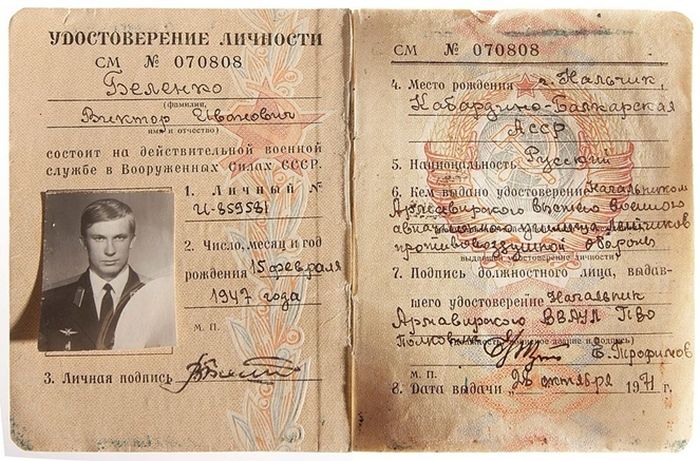 УДОСТОВЕРЕНИЕ ЛИЧНОСТИ
СМ № 070808
Беленко
(фамилия,
Виктор Иванович
имя и отчество)
состоит на действительной военной
службе в Вооруженных Силах СССР.
1. Личный №
И-859581
2. Число, месяц и год
рождения 15 февраля
1947 года
М. П.
3. Личная подпись
СМ № 070808
4. Место рождения г. Нальчик,
Кабардино-Балкарская
АССР
5. Национальность Русский
6. Кем выдано удостоверение Начальником
Армавирского высшего военного
авиационного училища лётчиков
противовоздушной обороны
выдавшей удостоверение личности)
7. Подпись должностного лица, выдав-
шего удостоверение Начальник
Армавирского ВВАУЛ ПВО
Полковник Е. Трофимов
звание и подпись)
М. П.
8. Дата выдачи „28 октября 1971 г.